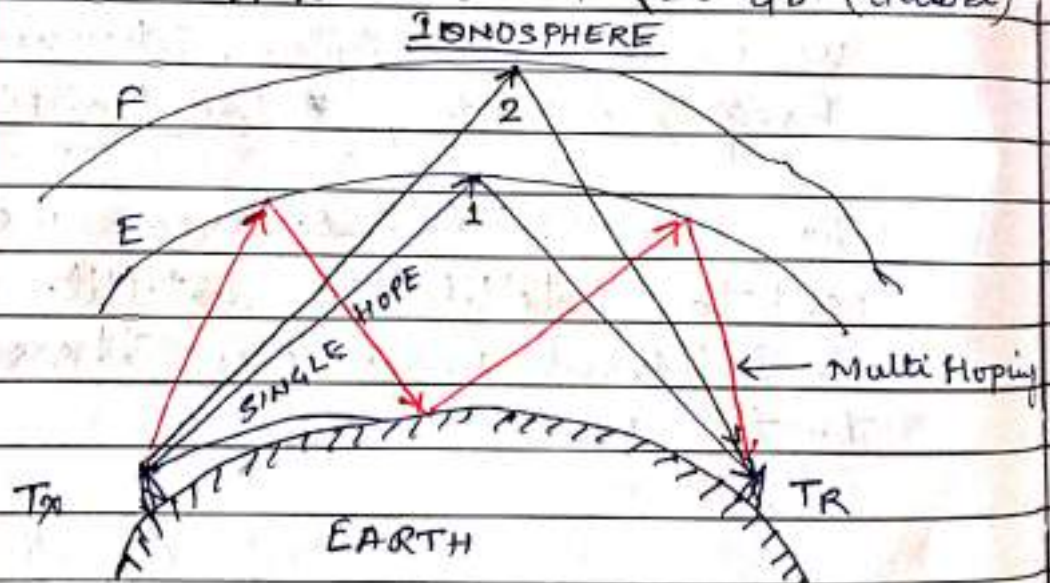 IONOSPHERE
F
2
E
1
SINGLE HOPE
Multi Hoping
Tx
TR
EARTH